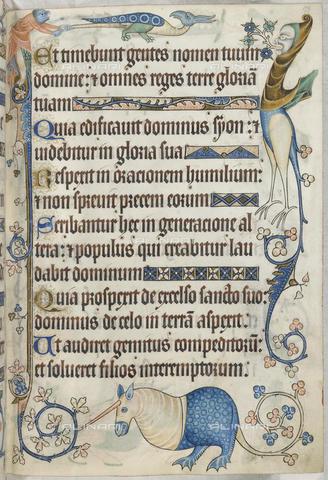 Et timebunt gentes nomen tuum
domine: ⁊ omnes reges terre gloriā
tuam
Quia edificauit dominus syon: ⁊
uidebitur in gloria sua
Respexit in oracionem humilium:
⁊ non spreuit precem eorum
Scribantur hec in generacione al
tera: ⁊ populus qui creabitur lau
dabit dominum
Quia prospexit de excelso sancto suo:
dominus de celo in terrā aspexit.
Ut audiret gemitus compeditorū:
et solueret filios interemptorum:
ALINARI